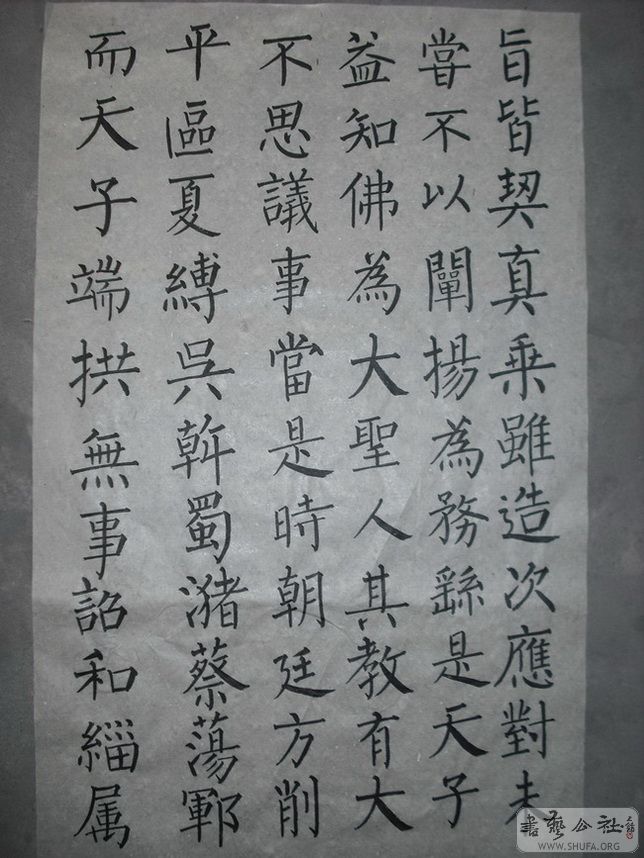 旨皆契真乘雖造次應對未
嘗不以闡揚為務繇是天子
益知佛為大聖人其教有大
不思議事當是時朝廷方削
平區夏縛吳斡蜀瀦蔡蕩鄆
而天子端拱無事詔和緇属
書藝公社
WWW.SHUFA.ORG